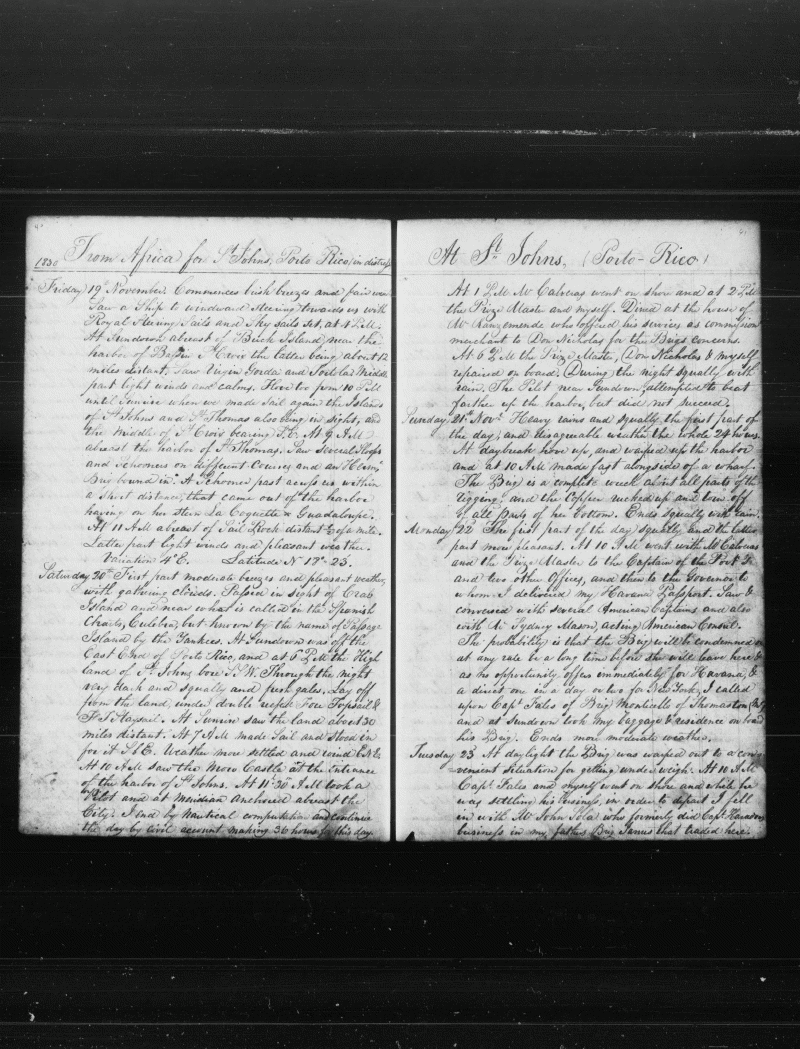 1830 From Africa for St Johns, Porto Rico (in distress
Friday 19th November. Commences brisk breezes and fair
Saw a Ship to windward steering towards us with
Royal Steering Sails and Sky sails set, at 4 P.M.
At Sundown abreast of Buck Island near the
harbor of Bassin St Croix the latter being about 12
miles distant, saw Virgin Gorda and Tortola. Middle
part light winds and calms. Hove to from 10 P.M
until Sunrise when we made sail again the Islands
of St Johns and St Thomas also being in sight, and
the middle of St Croix bearing S.E. At 9 A.M
abreast the harbor of St Thomas. Saw several Sloops
and Schooners on different Courses and an Herm.
Brig bound in. A Schooner past across us within
a short distance, that came out of the harbor
having on her stern La Coquette & Guadaloupe.
At 11 A.M abreast of Sail Rock distant ½ of a mile.
Latter part light winds and pleasant weather.
Variation 4° E. Latitude N 18°. 23.
Saturday 20th First part moderate breezes and pleasant weather,
with gathering clouds. Passed in sight of Crab
Island and near what is called in the Spanish
Charts, Culebra, but known by the name of Passage
Island by the Yankees. At Sundown was off the
East End of Porto Rico, and at 6 P.M the High
land of St Johns bore S.W. Through the night
very dark and squally and fresh gales. Lay off
from the land, under double reefed Fore Topsail &
F.T. Staysail. At Sunrise saw the land about 30
miles distant. At 7 A.M made Sail and stood in
for it S.b.E. Weather more settled and wind E.N.E.
At 10 A.M saw the Moro Castle at the Entrance
of the harbor of St Johns. At 11.30 A.M took a
Pilot and at Meridian Anchored abreast the
City. I end by Nautical computation and continue
the day by civil account making 36 hours for this day
At St Johns, (Porto-Rico)
At 1 P.M Mr Cabreras went on shore and at 2 P.M
the Prize Master and myself. Dined at the house of
Mr Manzemende who offered his services as commission
merchant to Don Nicholas for the Brigs concerns.
At 6 P.M the Prize Master, Don Nicholas & myself
repaired on board. During the night squally with
rain. The Pilot near Sundown, attempted to beat
farther up the harbor, but did not succeed.
Sunday 21st Novr Heavy rains and squally the first part of
the day, and disagreeable weather the whole 24 hours.
At daybreak hove up, and warped up the harbor
and at 10 A.M made fast alongside of a wharf.
The Brig is a complete wreck about all parts of the
rigging and the Copper rucked up and torn off
of all parts of her bottom. Ends squally with rain.
Monday 22 The first part of the day squally and the latter
part more pleasant. At 10 A.M went with Mr Cabreras
and the Prize Master to the Captain of the Port &c
and two other Offices, and then to the Governor to
whom I delivered my Havana Passport. Saw &
conversed with several American Captains and also
with Mr Sydney Mason, acting American Consul.
The probability is that the Brig will be condemned or
at any rate be a long time before she will leave here &
as no opportunity offers immediately for Havana, &
a direct one in a day or two for New York, I called
upon Capt Fales of Brig Monticello of Thomaston (Me)
and at Sundown took my baggage & residence on board
his Brig. Ends more moderate weather.
Tuesday 23 At daylight the Brig was warped out to a conv-
venient situation for getting under weigh. At 10 A.M
Capt Fales and myself went on shore and while he
was settling his business, in order to depart I fell
in with Mr John Sola who formerly did Capt
business in my fathers Brig James that traded here.